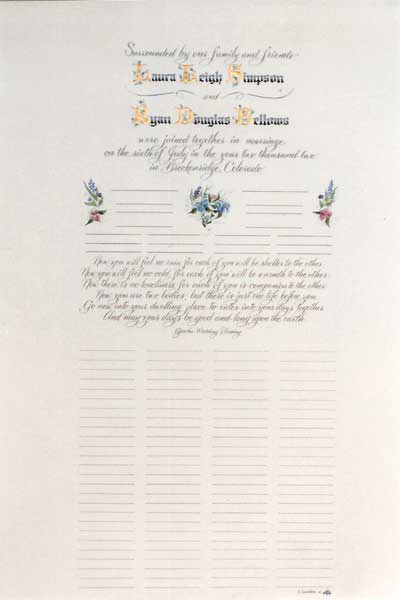 Surrounded by our family and friends
Laura Leigh Simpson
and
Ryan Douglas Bellows
were joined together in marriage
on the sixth of July in the year two thousand two
in Breckenridge, Colorado
Now you will feel no rain for each of you will be shelter to the other.
Now you will feel no cold, for each of you will be warmth to the other.
Now there is no loneliness, for each of you is companion to the other.
Now you are two bodies, but there is just one life before you.
Go now into your dwelling place, to enter into your days together.
And may your days be good and long upon the earth.
Apache Wedding Blessing